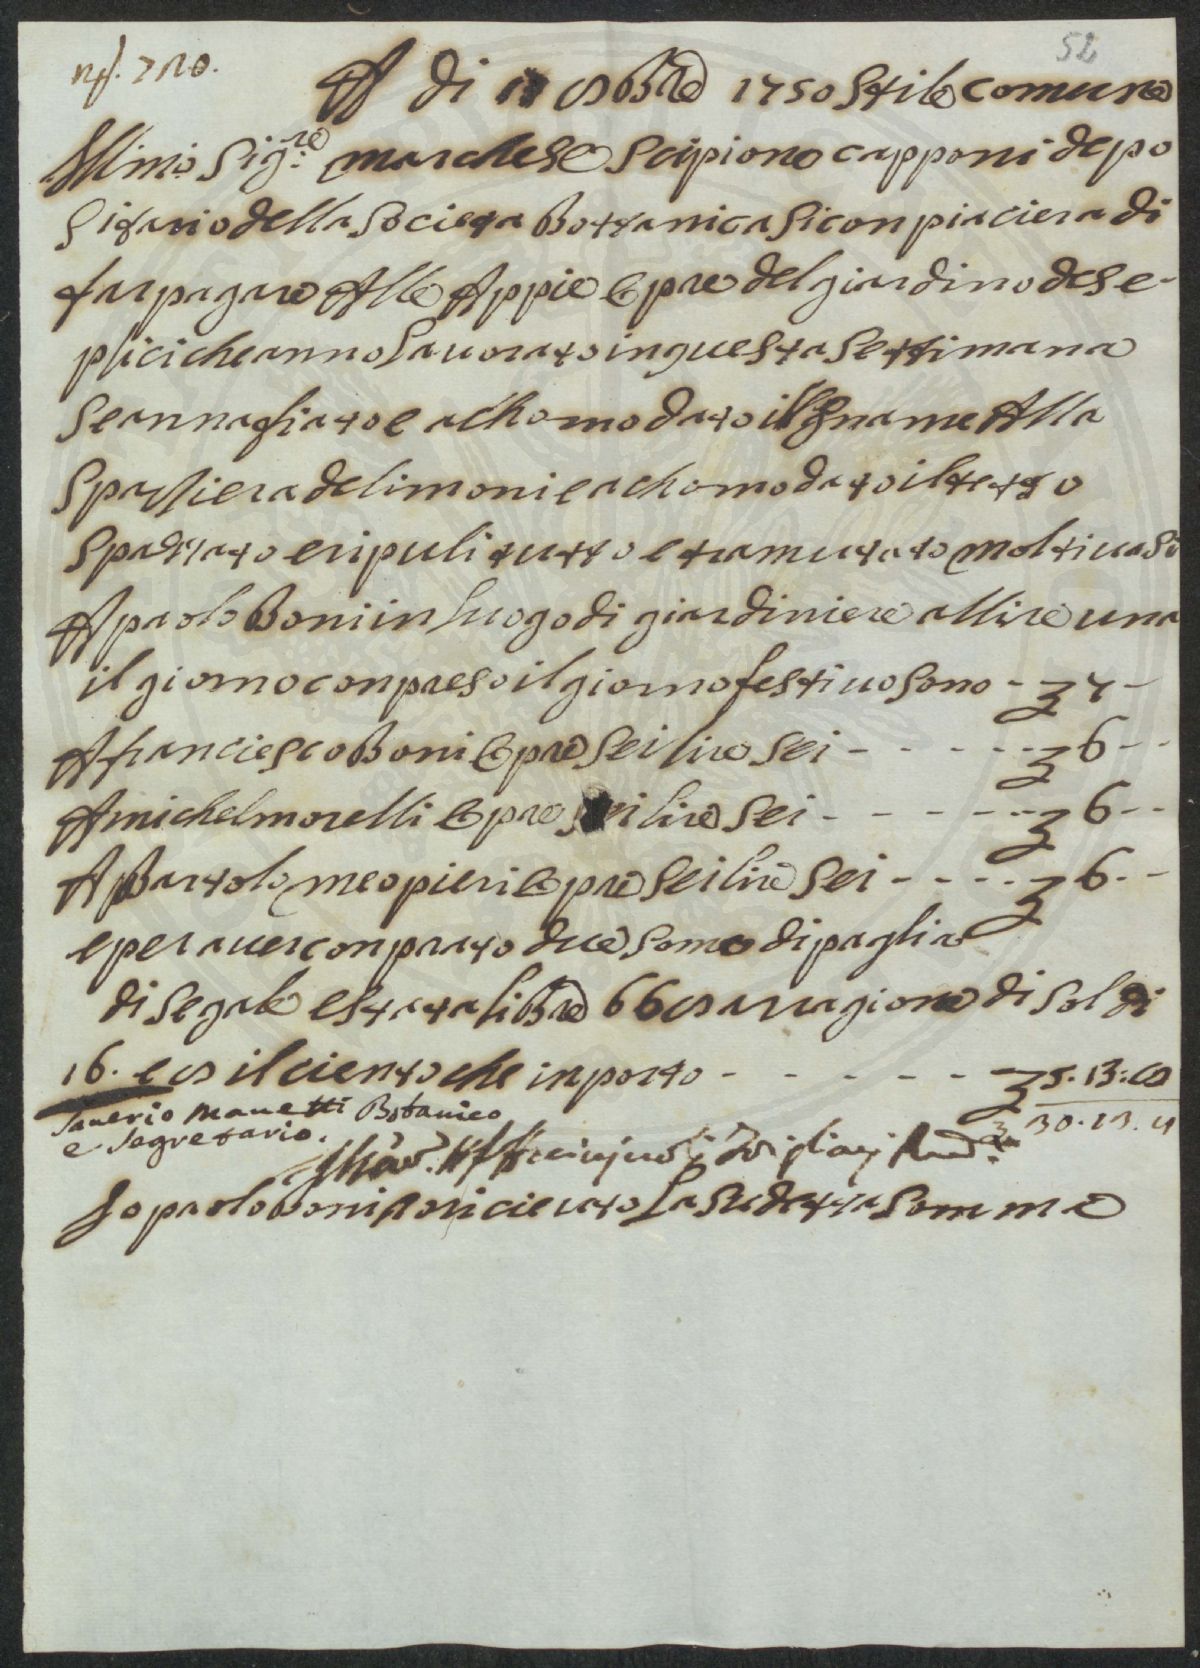 52
A di 8bre 1750 Stile comune
Illmo Sigre marchese Scipione capponi depo
Sitario della Societa Bottanica Si conpiaciera di
far pagare Alle Appie Opre del giardino de Se-
plici che anno Lauorato in questa Settimana
Se annafiato e achomodato il legname Alla
Spalliera de limoni e achomodato il tetto
Spazzato e ripulito tutto e tramutato molti uasi
A paolo Boni in Luogo di giardiniere a llire una
il giorno conpreso il giorno festiuo Sono - ₤ 7 -
A franciesco Boni Opre Sei lire Sei - - - - - ₤ 6 - -
A michel morelli Opre Sei lire Sei - - - - - ₤ 6 - -
A Bartolomeo pieri Opre Sei lire Sei - - - - ₤ 6 - -
e per auer conprato due Some di paglia
di Segale e Stata libre 668 a ragione di Soldi
16. e 8 il ciento che inporto - - - - - - ₤ 5. 13: 8
30. 13.
Sauerio Manetti Botanico
e Segretario.
Io paolo Boni ricieuto La Sudetta Somma